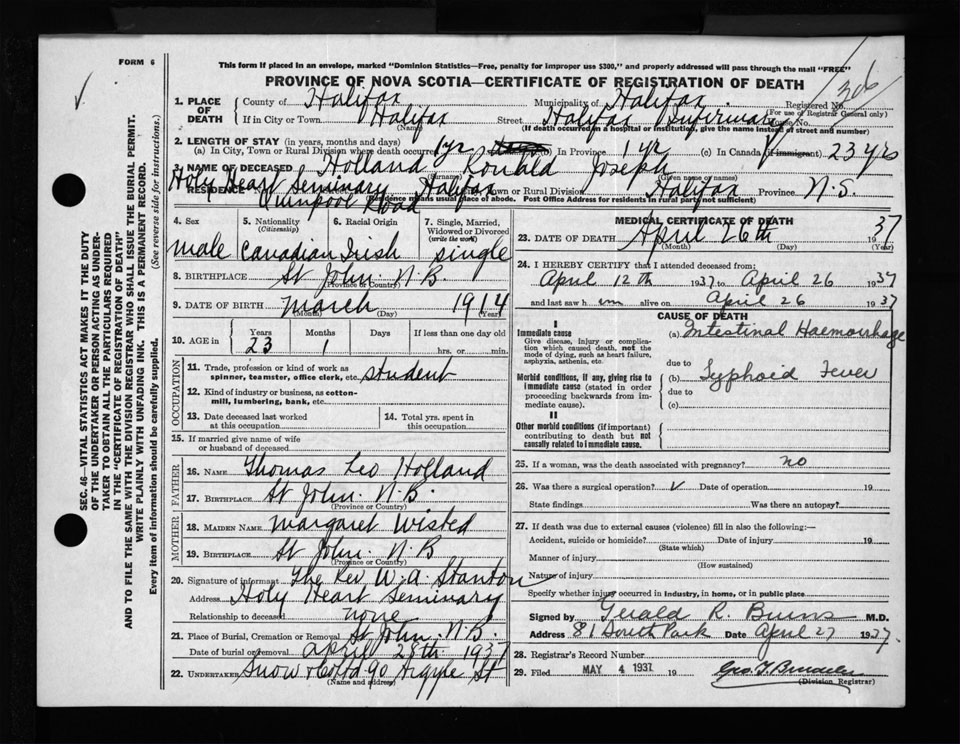 FORM 6
This form if placed in an envelope, marked "Dominion Statistics—Free, penalty for improper use $300," and properly addressed will pass through the mail "FREE"
PROVINCE OF NOVA SCOTIA—CERTIFICATE OF REGISTRATION OF DEATH
306
1. PLACE OF DEATH County of Halifax Municipality of Halifax Registered No.
(For use of Registrar General only)
If in City or Town Halifax Street Halifax Infirmary House No.
(Name) (If death occurred in a hospital or institution, give the name instead of street and number)
2. LENGTH OF STAY (in years, months and days)
(a) In City, Town or Rural Division where death occurred 1 yr (b) In Province 1 yr (c) In Canada (if immigrant) 23 yrs
3. NAME OF DECEASED Holland Ronald Joseph
(Surname) (Given name or names)
RESIDENCE Holy Heart Seminary Halifax Town or Rural Division Halifax Province N.S.
Quinpool Road
(Residence means usual place of abode. Post Office Address for residents in rural parts not sufficient)
4. Sex 5. Nationality (Citizenship) 6. Racial Origin 7. Single, Married, Widowed or Divorced (write the word)
male Canadian Irish single
8. BIRTHPLACE St John. N.B
(Province or Country)
9. DATE OF BIRTH March 1914
(Month) (Day) (Year)
10. AGE in Years Months Days If less than one day old
23 1 hrs. or min.
OCCUPATION
11. Trade, profession or kind of work as spinner, teamster, office clerk, etc. student
12. Kind of industry or business, as cotton-mill, lumbering, bank, etc.
13. Date deceased last worked at this occupation
14. Total yrs. spent in this occupation
15. If married give name of wife or husband of deceased
FATHER
16. NAME Thomas Leo Holland
17. BIRTHPLACE St John. N.B.
(Province or Country)
MOTHER
18. MAIDEN NAME Margaret Wisted
19. BIRTHPLACE St John. N.B
(Province or Country)
20. Signature of informant The Rev W.A. Stanton
Address Holy Heart Seminary
Relationship to deceased none
21. Place of Burial, Cremation or Removal St John. N.B.
Date of burial or removal April 28th 1937
22. UNDERTAKER Snow & Co Ltd 90 Argyle St
(Name and address)
MEDICAL CERTIFICATE OF DEATH
23. DATE OF DEATH April 26th 1937
(Month) (Day) (Year)
24. I HEREBY CERTIFY that I attended deceased from:
April 12th 1937 to April 26 1937
and last saw him alive on April 26 1937
CAUSE OF DEATH
I
Immediate cause
Give disease, injury or complication which caused death, not the mode of dying, such as heart failure, asphyxia, asthenia, etc.
(a) Intestinal Haemorrhage
due to
Morbid conditions, if any, giving rise to immediate cause (stated in order proceeding backwards from immediate cause).
(b) Typhoid Fever
due to
(c)
II
Other morbid conditions (if important) contributing to death but not causally related to immediate cause.
25. If a woman, was the death associated with pregnancy? no
26. Was there a surgical operation? Date of operation 19
State findings Was there an autopsy?
27. If death was due to external causes (violence) fill in also the following:—
Accident, suicide or homicide? Date of injury 19
(State which)
Manner of injury
(How sustained)
Nature of injury
Specify whether injury occurred in industry, in home, or in public place
Signed by Gerald R. Burns M.D.
Address 81 South Park Date April 27 1937.
28. Registrar's Record Number
29. Filed MAY 4 1937 19
(Division Registrar)
SEC. 46—VITAL STATISTICS ACT MAKES IT THE DUTY
OF THE UNDERTAKER OR PERSON ACTING AS UNDER-
TAKER TO OBTAIN ALL THE PARTICULARS REQUIRED
IN THE "CERTIFICATE OF REGISTRATION OF DEATH"
AND TO FILE THE SAME WITH THE DIVISION REGISTRAR WHO SHALL ISSUE THE BURIAL PERMIT.
WRITE PLAINLY WITH UNFADING INK. THIS IS A PERMANENT RECORD.
Every item of information should be carefully supplied. (See reverse side for instructions.)